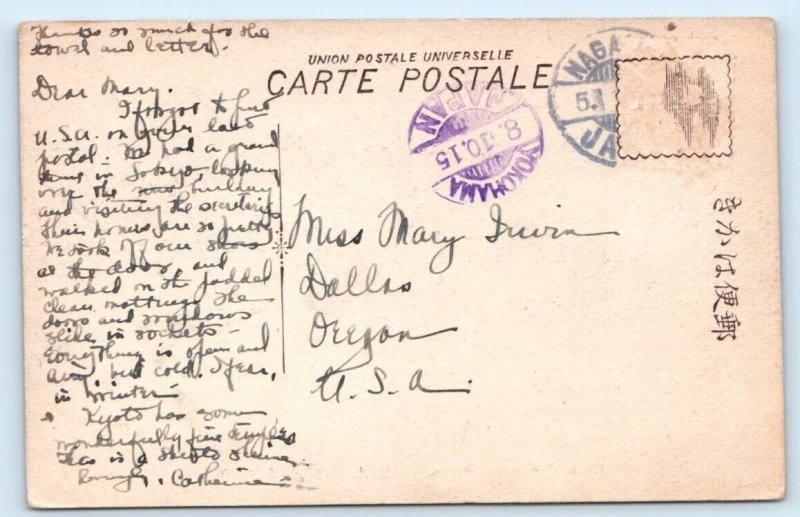 Thanks so much for the
towel and letter.
UNION POSTALE UNIVERSELLE
CARTE POSTALE
Dear Mary.
I forgot to put
U.S.A. on your last
postal. We had a grand
time in Tokyo, looking
over the new building
and visiting the secretaries
Their homes are so pretty
We took off our shoes
at the door and
walked on the padded
clean mattings. The
doors and windows
slide in sockets -
Everything is open and
airy, but cold. I fear,
in winter -
Kyoto has some
wonderfully fine temples
This is a Shinto shrine
Catherine
Miss Mary Irwin
Dallas
Oregon
U.S.A.
YOKOHAMA
8.10.15
JAPAN
NAGA
5.1
JA
きかは便郵